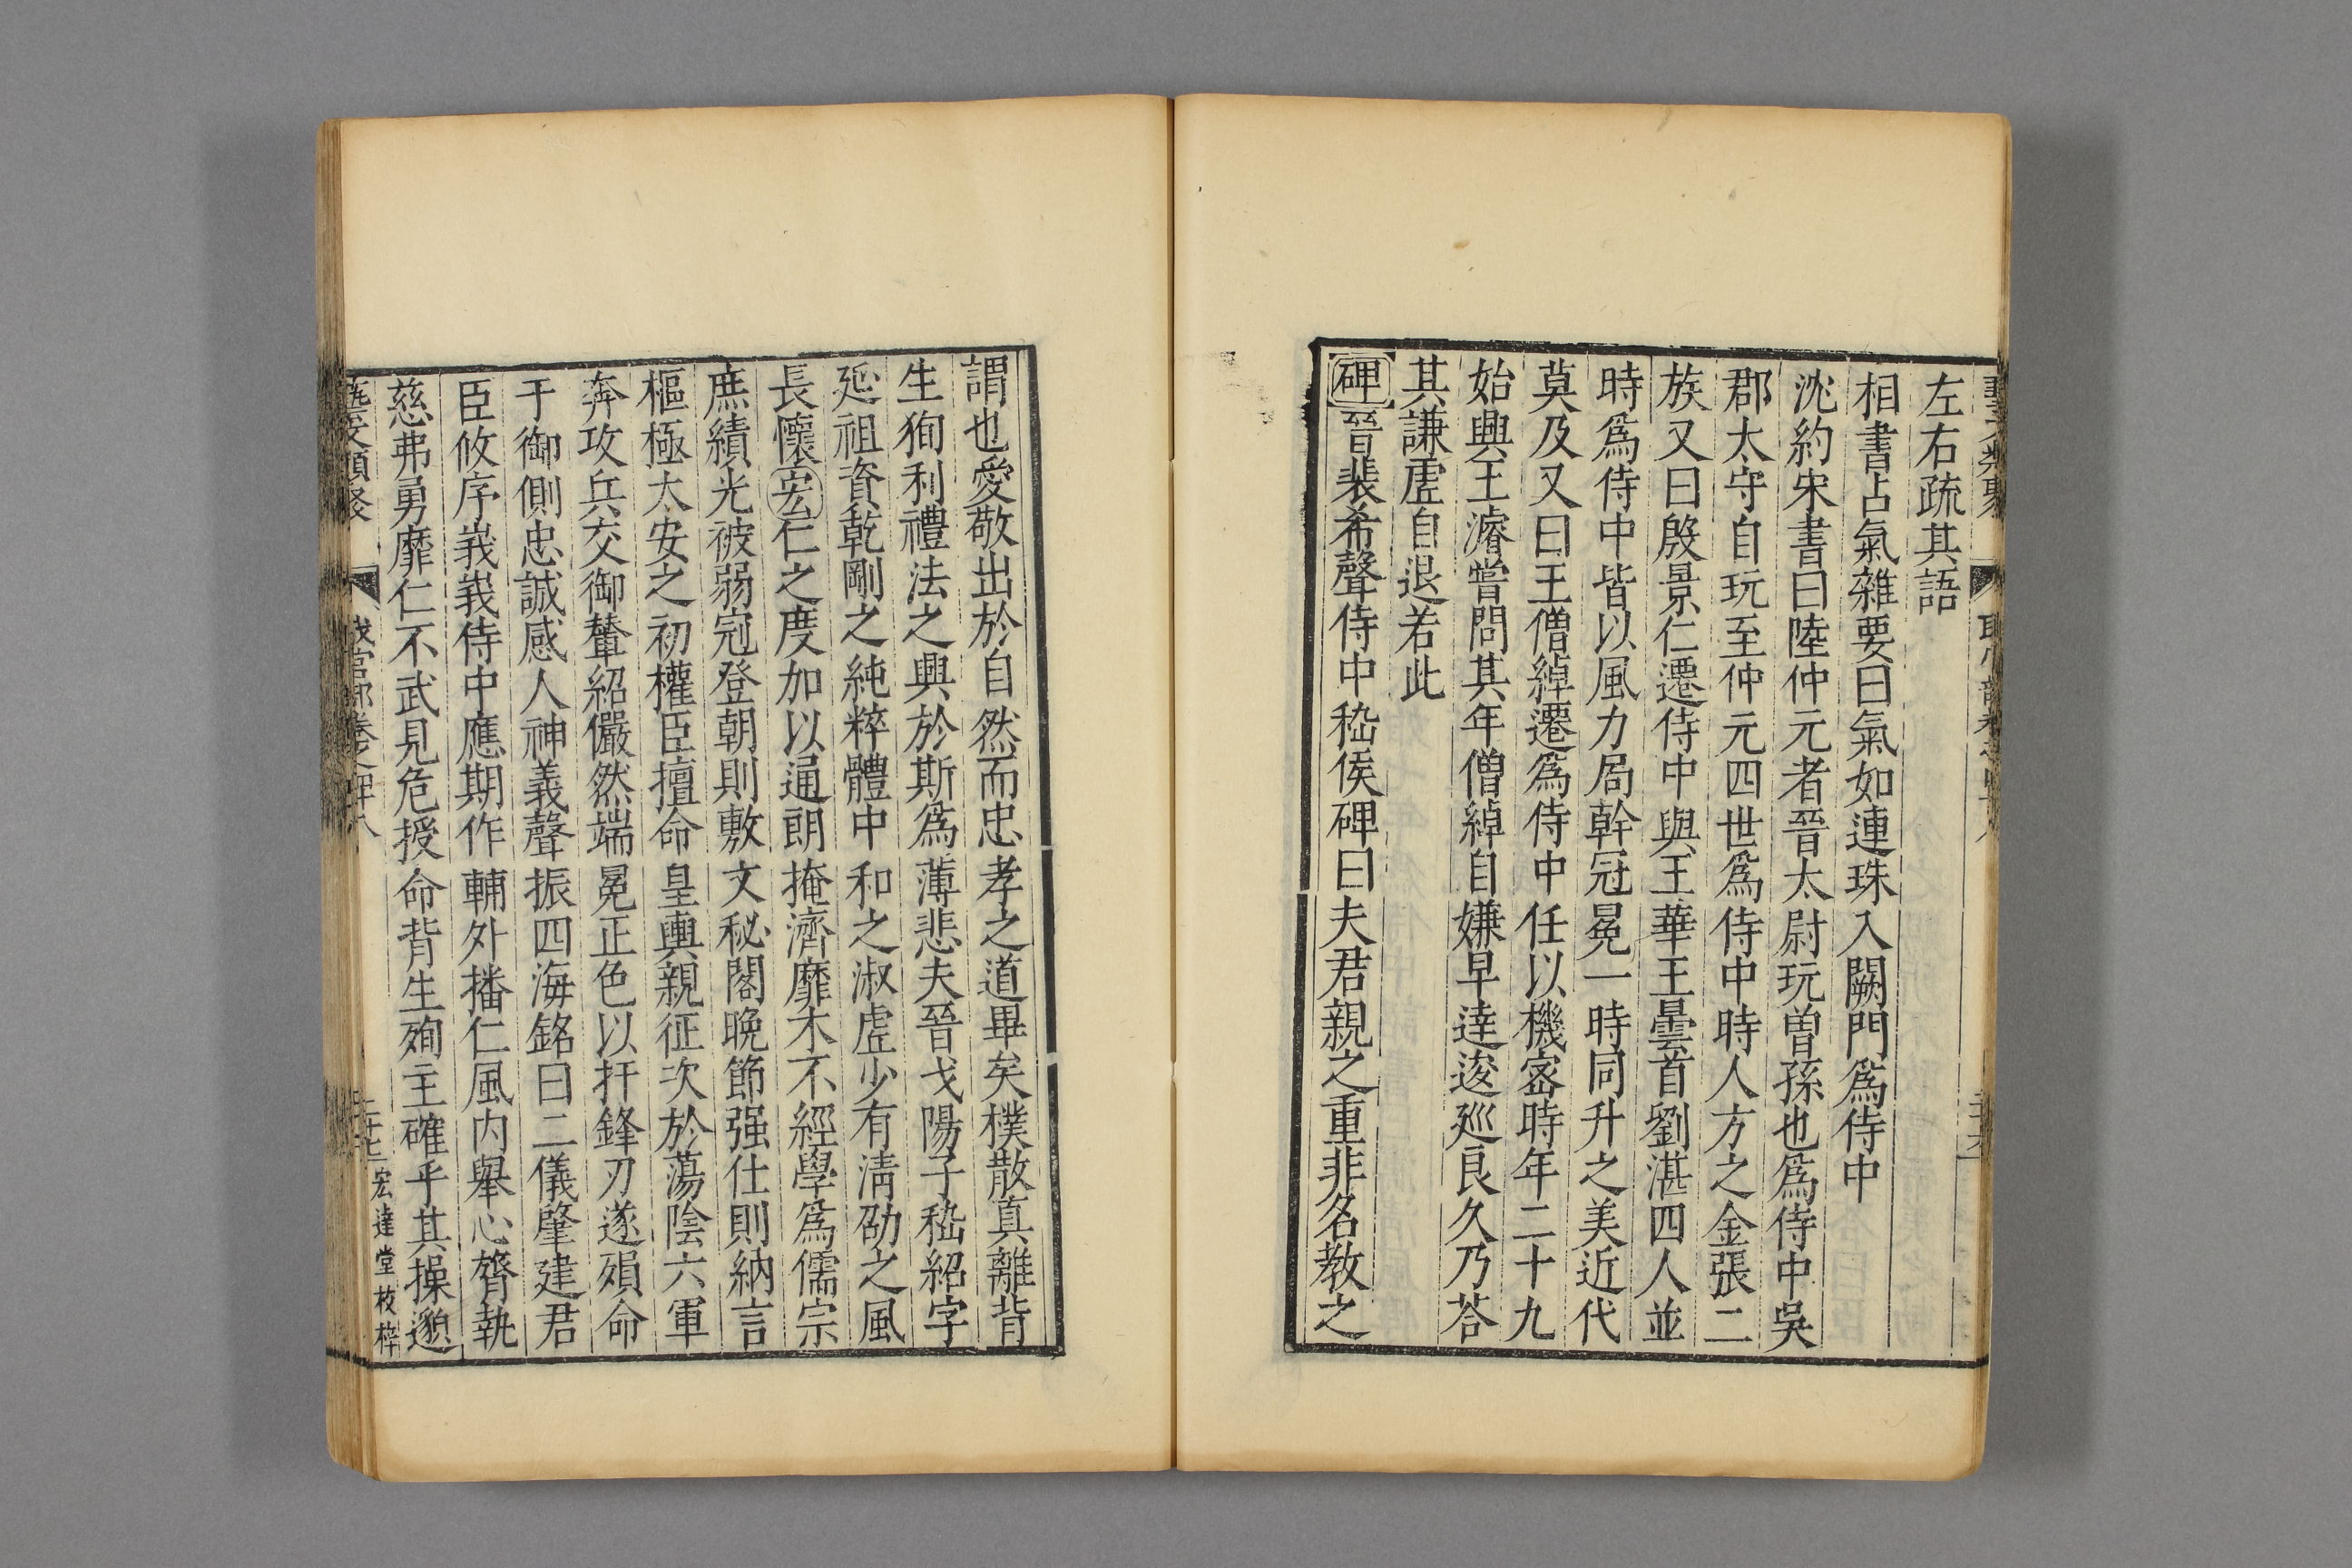 左右疏其語
相書占氣雜要曰氣如連珠入闕門爲侍中
沈約宋書曰陸仲元者晉太尉玩曾孫也爲侍中吳
郡太守自玩至仲元四世爲侍中時人方之金張二
族又曰殷景仁遷侍中與王華王曇首劉湛四人並
時爲侍中皆以風力局幹冠冕一時同升之美近代
莫及又曰王僧綽遷爲侍中任以機密時年二十九
始興王濬嘗問其年僧綽自嫌早達逡廵良久乃荅
其謙虗自退若此
碑晉裴希聲侍中嵇侯碑曰夫君親之重非名教之
謂也愛敬出於自然而忠孝之道畢矣樸散真離背
生狥利禮法之興於斯爲薄悲夫晉戈陽子嵇紹字
延祖資乾剛之純粹體中和之淑虗少有清劭之風
長懷宏仁之度加以通朗掩濟靡木不經學爲儒宗
庶績光被弱冠登朝則敷文秘閣晚節强仕則納言
樞極太安之初權臣擅命皇輿親征次於蕩陰六軍
奔攻兵交御輦紹儼然端冕正色以扞鋒刃遂殞命
于御側忠誠感人神義聲振四海銘曰二儀肇建君
臣攸序峩峩侍中應期作輔外播仁風内舉心膂執
慈弗勇靡仁不武見危授命背生殉主確乎其操邈
藝文類聚 職官部卷之四十八 二十七 宏達堂校梓